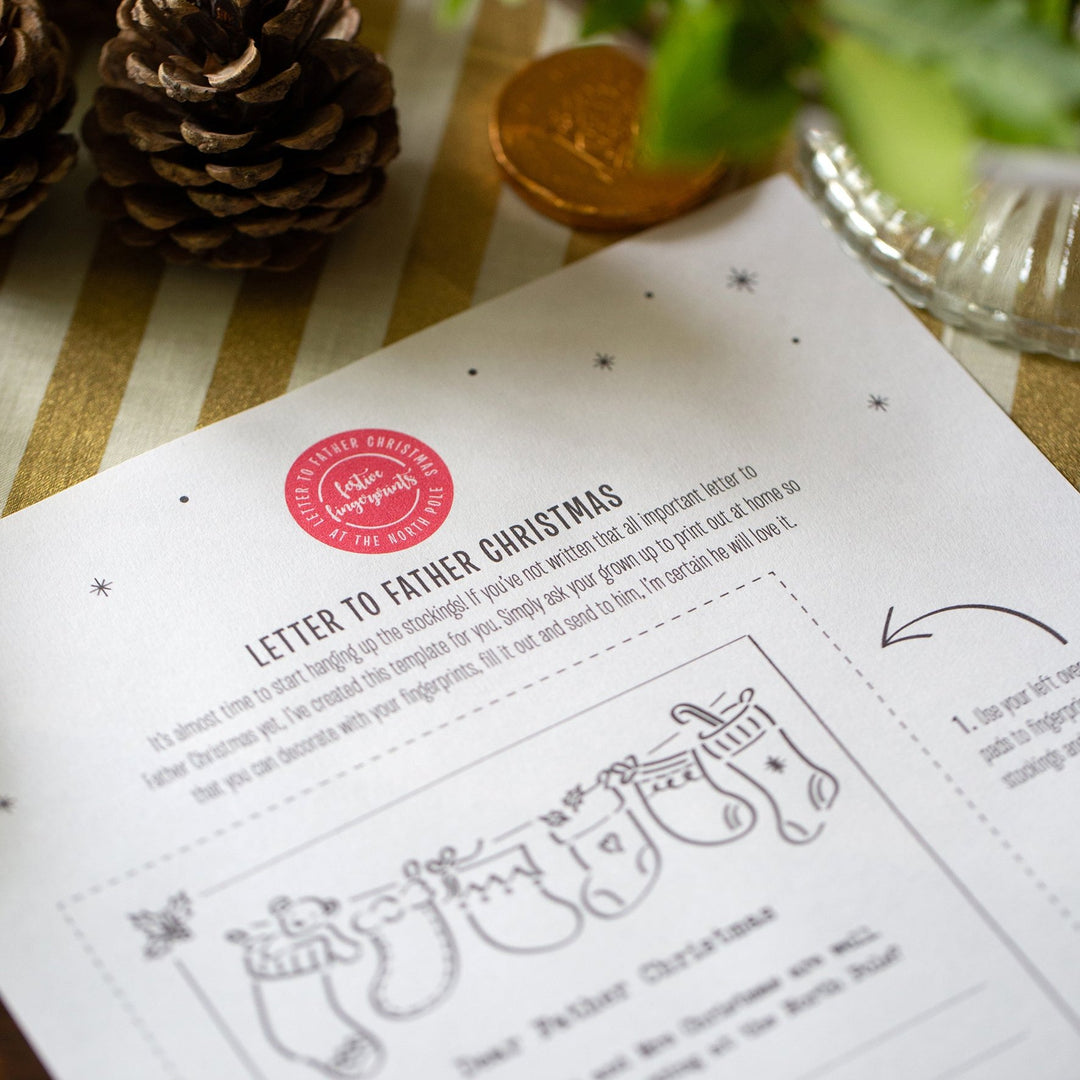 LETTER TO FATHER CHRISTMAS
festive
fingerprints
AT THE NORTH POLE
LETTER TO FATHER CHRISTMAS
It's almost time to start hanging up the stockings! If you've not written that all important letter to
Father Christmas yet, I've created this template for you. Simply ask your grown up to print out at home so
that you can decorate with your fingerprints, fill it out and send to him, I'm certain he will love it.
1. Use your left over
pads to fingerpri
stockings an
Dear Father Christmas
and Mrs Christmas are well
ing at the North Pole?